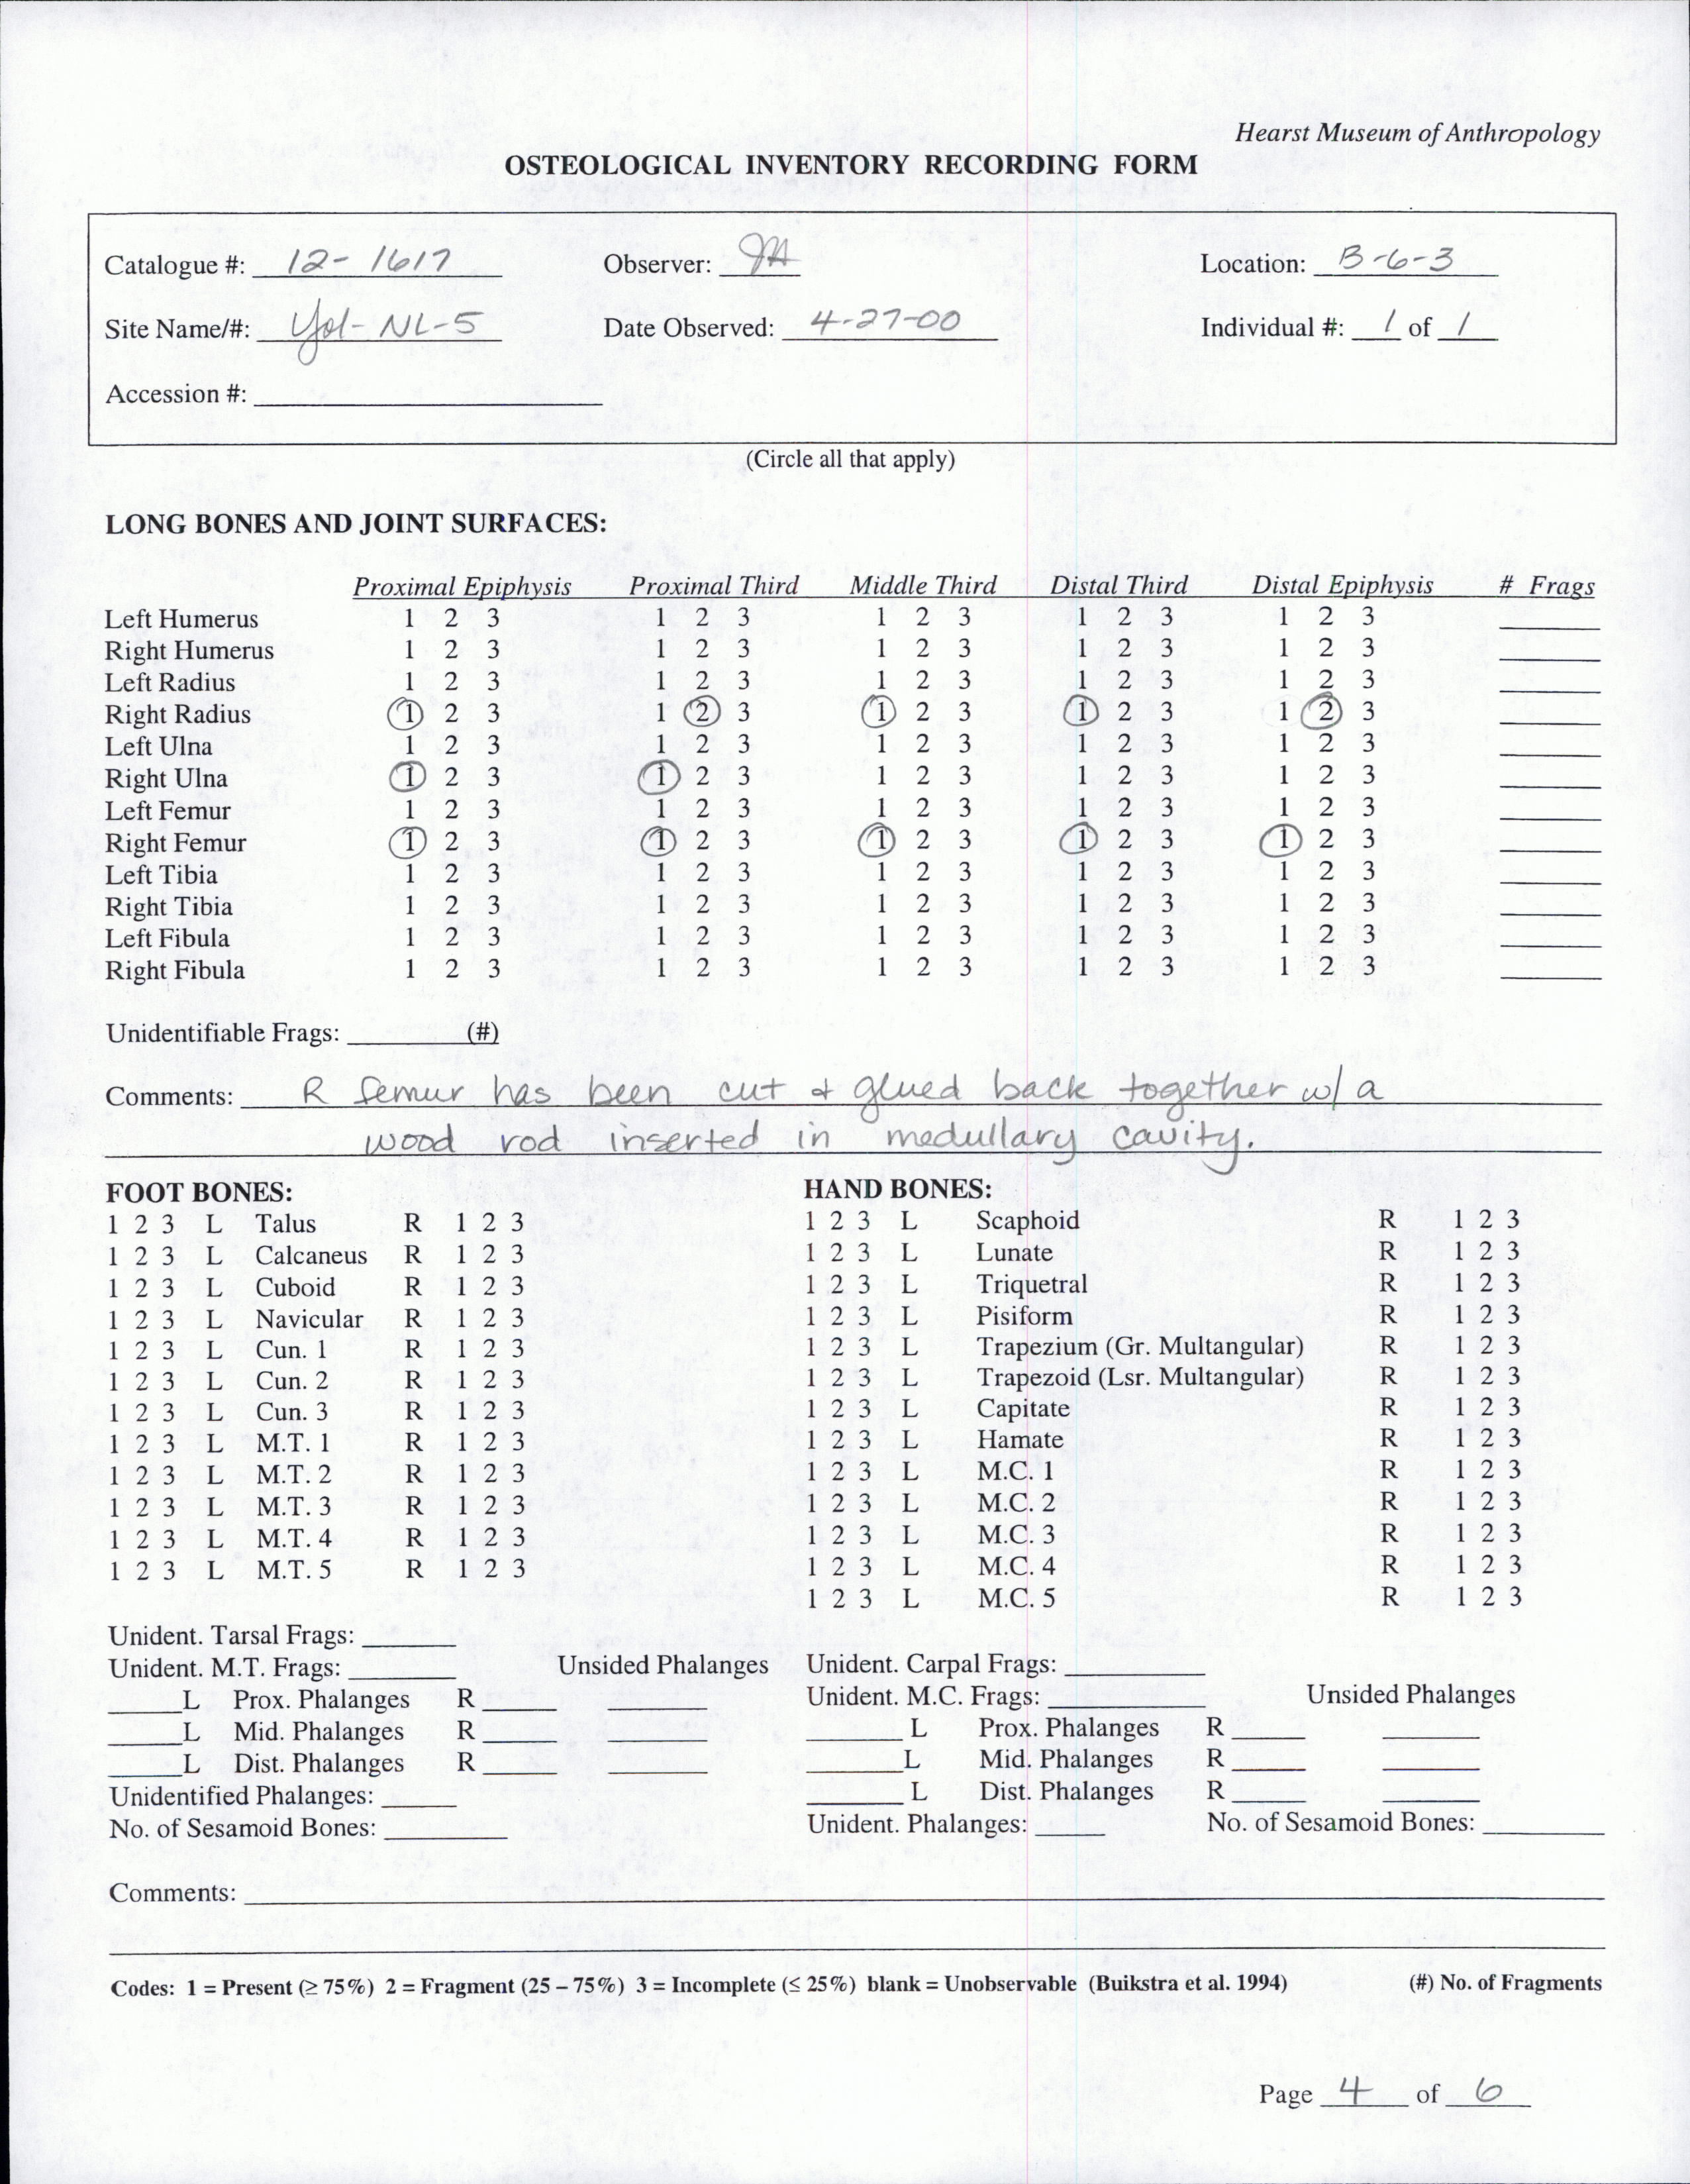 Hearst Museum of Anthropology
OSTEOLOGICAL INVENTORY RECORDING FORM
Catalogue #: 12-1617 Observer: JA Location: B-6-3
Site Name/#: Yol-NL-5 Date Observed: 4-27-00 Individual #: 1 of 1
Accession #:
(Circle all that apply)
LONG BONES AND JOINT SURFACES:
Proximal Epiphysis Proximal Third Middle Third Distal Third Distal Epiphysis # Frags
Left Humerus 1 2 3 1 2 3 1 2 3 1 2 3 1 2 3
Right Humerus 1 2 3 1 2 3 1 2 3 1 2 3 1 2 3
Left Radius 1 2 3 1 2 3 1 2 3 1 2 3 1 2 3
Right Radius 1 2 3 1 2 3 1 2 3 1 2 3 1 2 3
Left Ulna 1 2 3 1 2 3 1 2 3 1 2 3 1 2 3
Right Ulna 1 2 3 1 2 3 1 2 3 1 2 3 1 2 3
Left Femur 1 2 3 1 2 3 1 2 3 1 2 3 1 2 3
Right Femur 1 2 3 1 2 3 1 2 3 1 2 3 1 2 3
Left Tibia 1 2 3 1 2 3 1 2 3 1 2 3 1 2 3
Right Tibia 1 2 3 1 2 3 1 2 3 1 2 3 1 2 3
Left Fibula 1 2 3 1 2 3 1 2 3 1 2 3 1 2 3
Right Fibula 1 2 3 1 2 3 1 2 3 1 2 3 1 2 3
Unidentifiable Frags: (#)
Comments: R femur has been cut & glued back together w/ a
wood rod inserted in medullary cavity.
FOOT BONES:
1 2 3 L Talus R 1 2 3
1 2 3 L Calcaneus R 1 2 3
1 2 3 L Cuboid R 1 2 3
1 2 3 L Navicular R 1 2 3
1 2 3 L Cun. 1 R 1 2 3
1 2 3 L Cun. 2 R 1 2 3
1 2 3 L Cun. 3 R 1 2 3
1 2 3 L M.T. 1 R 1 2 3
1 2 3 L M.T. 2 R 1 2 3
1 2 3 L M.T. 3 R 1 2 3
1 2 3 L M.T. 4 R 1 2 3
1 2 3 L M.T. 5 R 1 2 3
Unident. Tarsal Frags:
Unident. M.T. Frags: Unsided Phalanges
L Prox. Phalanges R
L Mid. Phalanges R
L Dist. Phalanges R
Unidentified Phalanges:
No. of Sesamoid Bones:
HAND BONES:
1 2 3 L Scaphoid R 1 2 3
1 2 3 L Lunate R 1 2 3
1 2 3 L Triquetral R 1 2 3
1 2 3 L Pisiform R 1 2 3
1 2 3 L Trapezium (Gr. Multangular) R 1 2 3
1 2 3 L Trapezoid (Lsr. Multangular) R 1 2 3
1 2 3 L Capitate R 1 2 3
1 2 3 L Hamate R 1 2 3
1 2 3 L M.C. 1 R 1 2 3
1 2 3 L M.C. 2 R 1 2 3
1 2 3 L M.C. 3 R 1 2 3
1 2 3 L M.C. 4 R 1 2 3
1 2 3 L M.C. 5 R 1 2 3
Unident. Carpal Frags:
Unident. M.C. Frags: Unsided Phalanges
L Prox. Phalanges R
L Mid. Phalanges R
L Dist. Phalanges R
Unident. Phalanges: No. of Sesamoid Bones:
Comments:
Codes: 1 = Present (≥ 75%) 2 = Fragment (25 – 75%) 3 = Incomplete (≤ 25%) blank = Unobservable (Buikstra et al. 1994) (#) No. of Fragments
Page 4 of 6